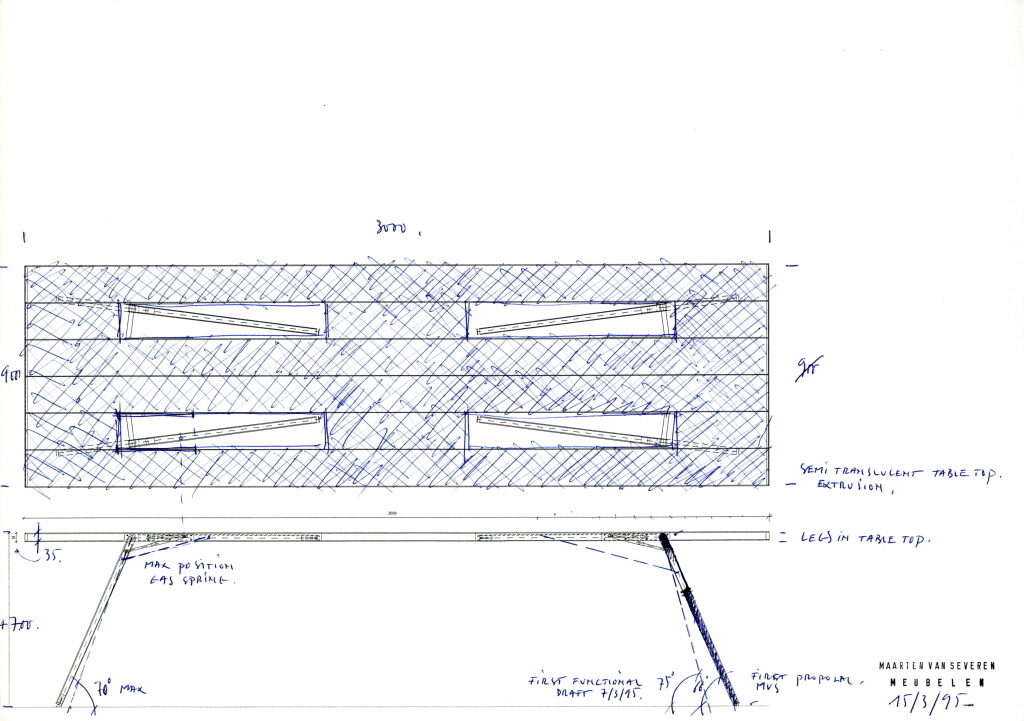 3000
900
900
SEMI TRANSLULENT TABLE TOP.
EXTRUSION.
3000
35.
LEGS IN TABLE TOP.
MAX POSITION
GAS SPRING.
+700.
70° MAX
FIRST FUNCTIONAL
DRAFT 7/3/95.
75°
FIRST PROPOSAL.
MVS
MAARTEN VAN SEVEREN
MEUBELEN
15/3/95